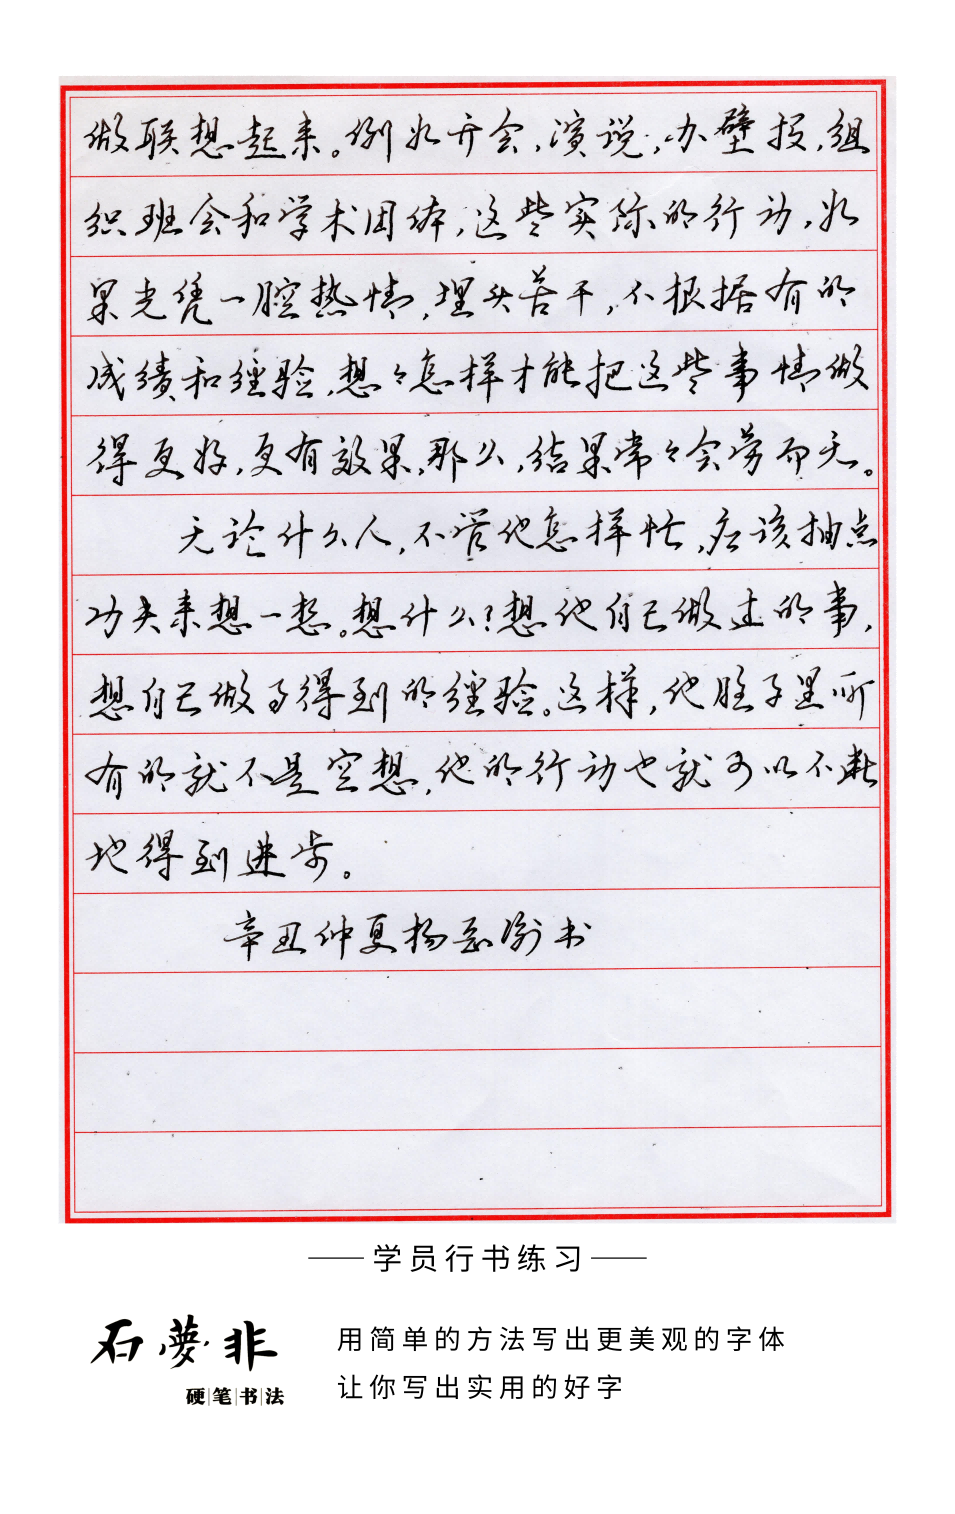 做联想起来。例如开会,演说,办壁报,组
织班会和学术团体,这些实际的行动,如
果光凭一腔热情,埋头苦干,不根据有的
成绩和经验,想々怎样才能把这些事情做
得更好,更有效果,那么,结果常々会劳而无。
无论什么人,不管他怎样忙,应该抽点
功夫来想一想。想什么?想他自己做过的事,
想自己做事得到的经验。这样,他脑子里所
有的就不是空想,他的行动也就可以不断
地得到进步。
辛丑仲夏杨 书
学员行书练习
石夢非
硬笔书法
用简单的方法写出更美观的字体
让你写出实用的好字